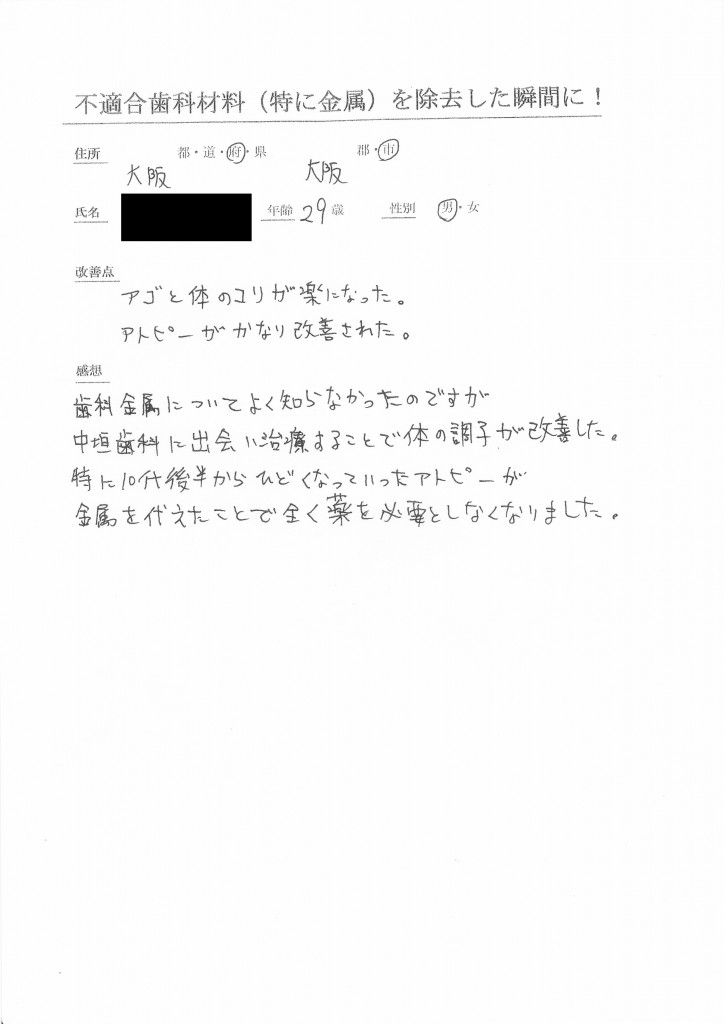 不適合歯科材料（特に金属）を除去した瞬間に！
住所 大阪 都・道・府・県 大阪 郡・市
氏名 年齢 29 歳 性別 男・女
改善点
アゴと体のコリが楽になった。
アトピーがかなり改善された。
感想
歯科金属についてよく知らなかったのですが
中垣歯科に出会い治療することで体の調子が改善した。
特に10代後半からひどくなっていったアトピーが
金属を代えたことで全く薬を必要としなくなりました。